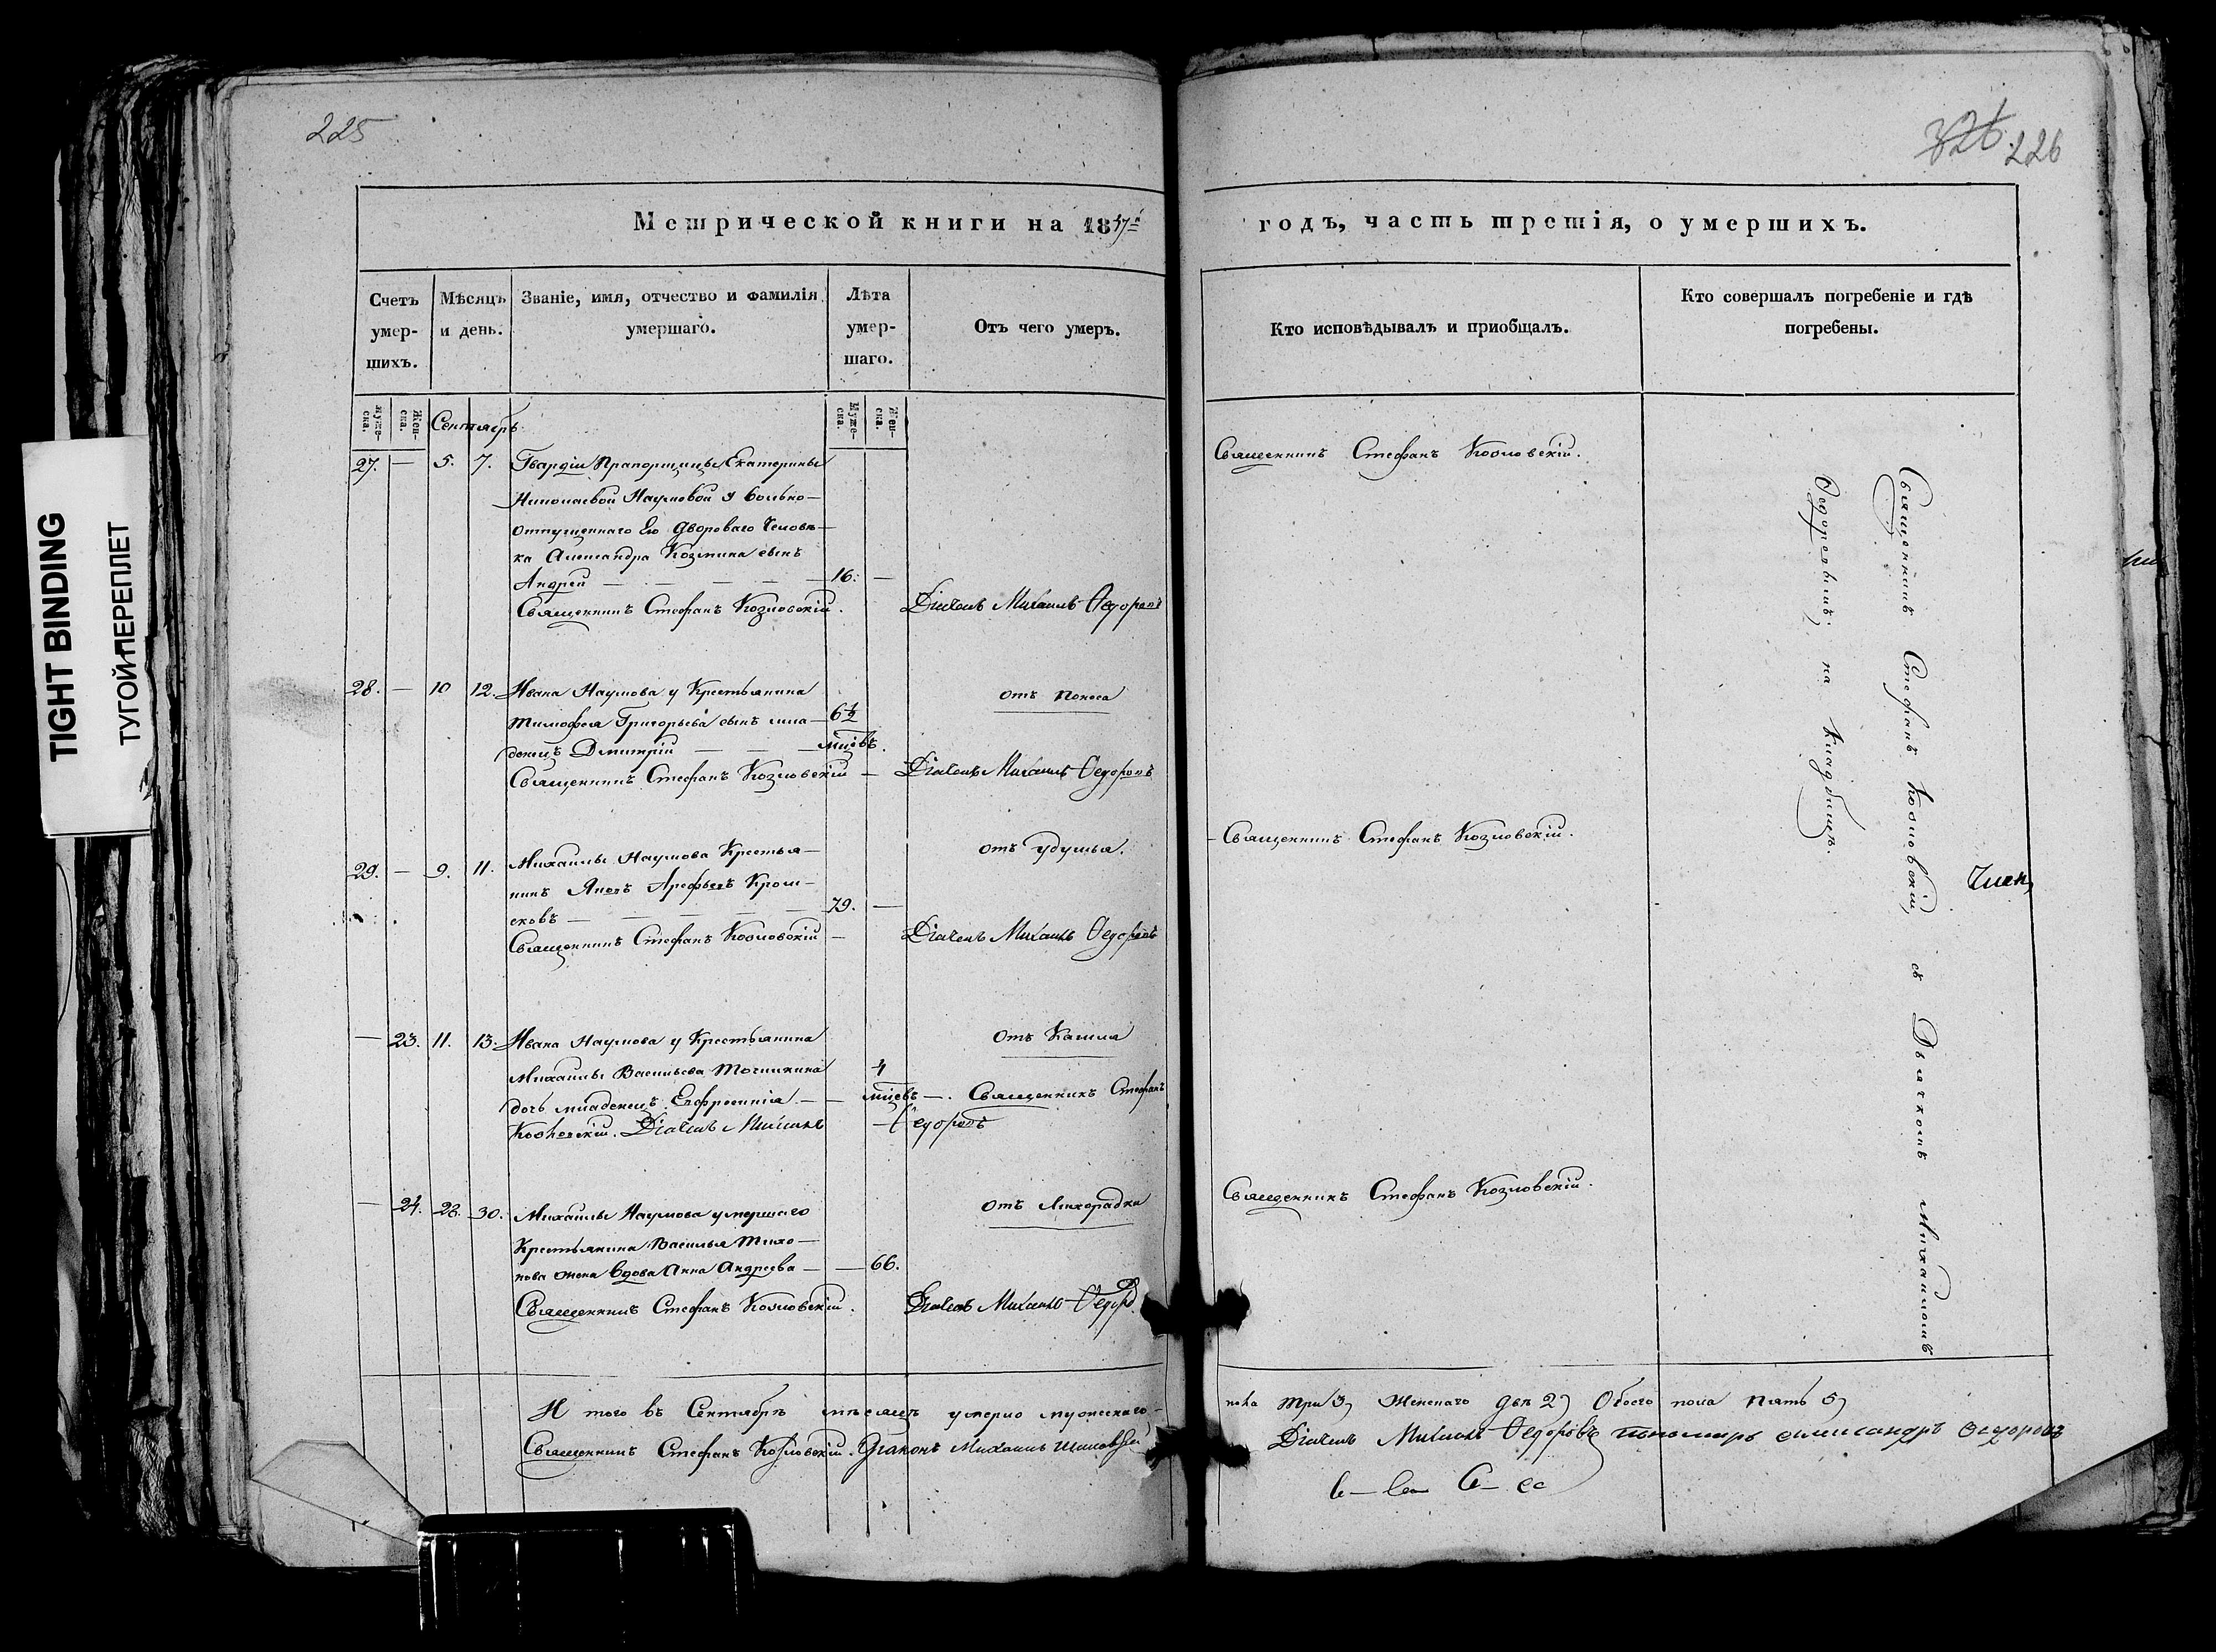 225
326 226
TIGHT BINDING
ТУГОЙ ПЕРЕПЛЕТ
Метрической книги на 1847й
годъ, часть третія, о умершихъ.
Счетъ умер-шихъ.
Мѣсяцъ и день.
Званіе, имя, отчество и фамилія умершаго.
Лѣта умер-шаго.
Отъ чего умеръ.
Кто исповѣдывалъ и приобщалъ.
Кто совершалъ погребеніе и гдѣ погребены.
муже-ска.
Жен-ска.
Муже-ска.
Жен-ска.
Сентябрь
27. — 5. 7. Гвардіи Прапорщицы Екатерины
Николаевой Наумовой у вольно-
отпущеннаго Ею Двороваго Человѣ-
ка Александра Козмина сынъ
Андрей — 16. —
Священникъ Стефанъ Козловскій. Діаче​къ Михаилъ Ѳедоровъ
Священникъ Стефанъ Козловскій.
28. — 10 12. Ивана Наумова у Крестьянина отъ поноса
Тимофея Григорьева сынъ мла- 6½
денецъ Дмитрій — мцовъ.
Священникъ Стефанъ Козловскій — Діачекъ Михаилъ Ѳедоровъ
29. — 9. 11. Михаилы Наумова Крестья- отъ удушья.
нинъ Арефьевъ
— 79. —
Священникъ Стефанъ Козловскій — Діачекъ Михаилъ Ѳедоровъ
Священникъ Стефанъ Козловскій.
— 23. 11. 13. Ивана Наумова у Крестьянина отъ Кашля
Михаилы Васильева Точилкина 4
дочь младенецъ Евфросинія — мцовъ —. Священникъ Стефанъ
Козловскій. Діачекъ Михаилъ — Ѳедоровъ
— 24. 28. 30. Михаилы Наумова умершаго отъ Лихорадки
Крестьянина Василья Тихо-
нова жена вдова Анна Андреева — 66.
Священникъ Стефанъ Козловскій. Діачекъ Михаилъ Ѳедоров
Священникъ Стефанъ Козловскій.
Священникъ Стефанъ Козловскій, съ Дьячкомъ Михаиломъ
Ѳедоровымъ, на Кладбищѣ.
Член
И того въ Сентябрѣ мѣсяцѣ умерло мужескаго
пола три 3, Женскаго двѣ 2, Обоего пола пять 5,
Священникъ Стефанъ Козловскій. Діаконъ Михаилъ
Діачекъ Михаилъ Ѳедоровъ Пономарь Александръ Ѳедоровъ